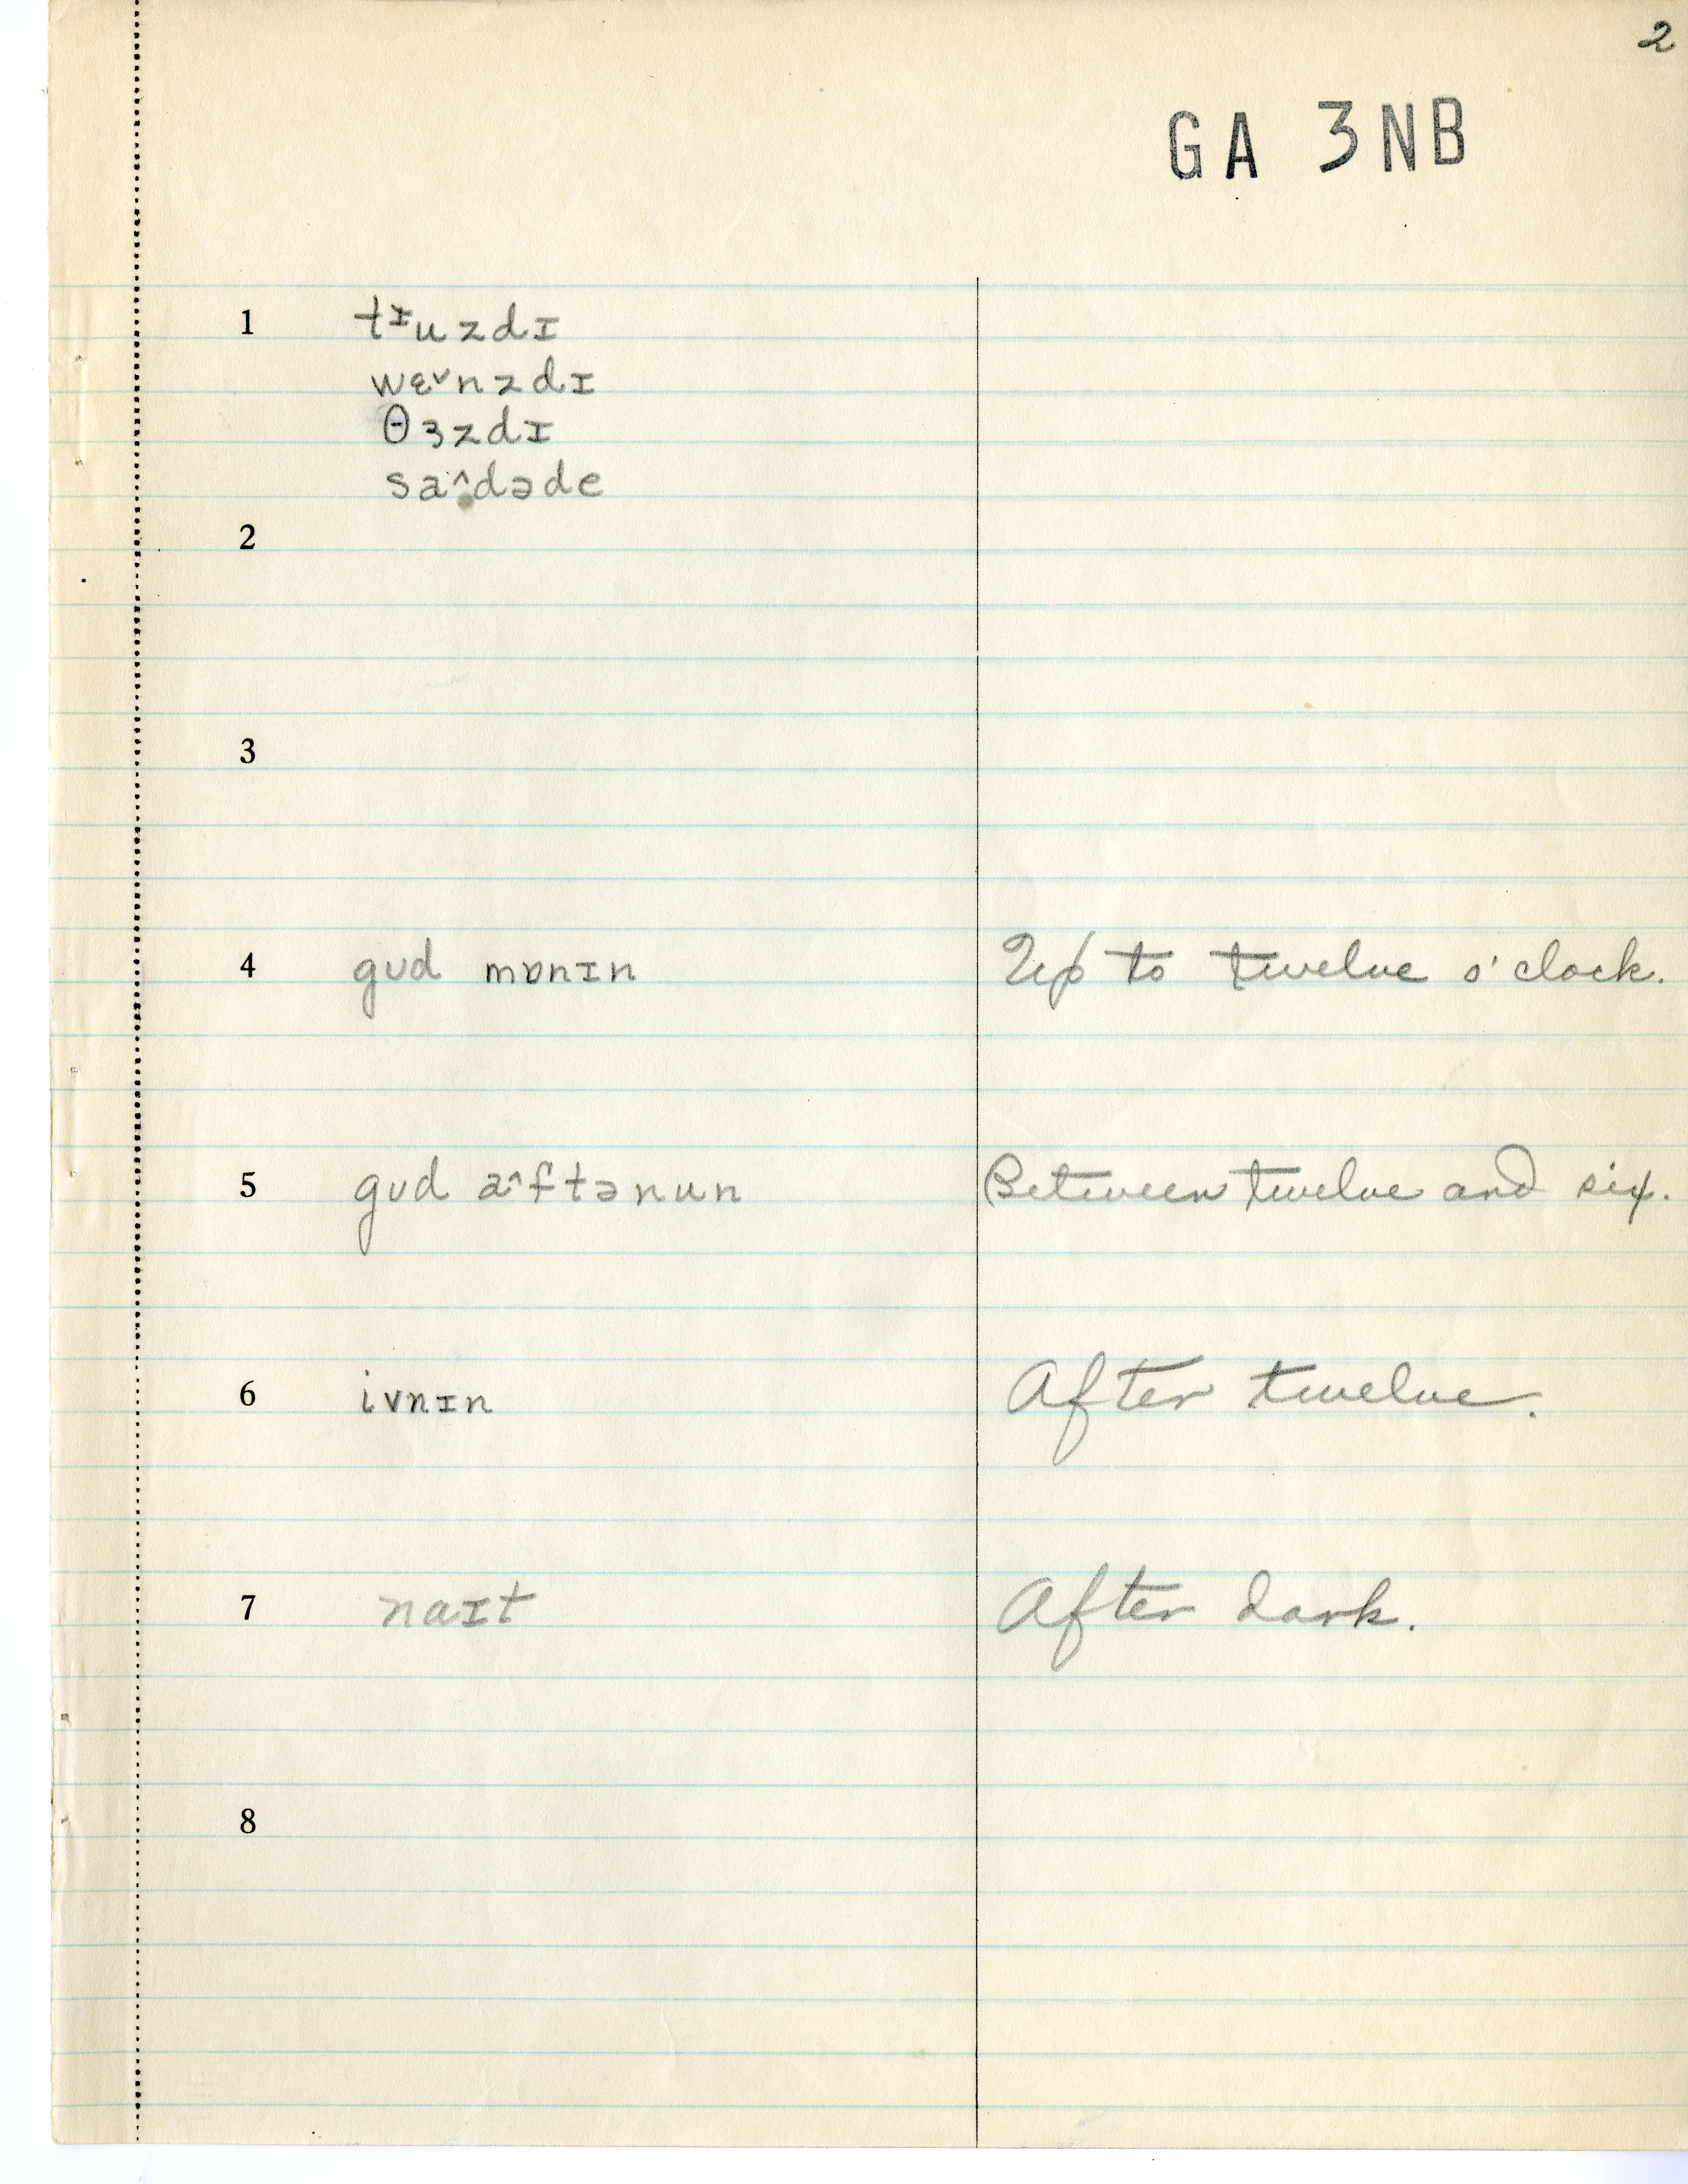 2
GA 3NB
1 tᶦuzdɪ
wɛ˅nzdɪ
θɜzdɪ
sa˄dəde
2
3
4 gʊd mɒnɪn Up to twelve o'clock.
5 gʊd a˄ftənun Between twelve and six.
6 ivnɪn After twelve.
7 naɪt After dark.
8